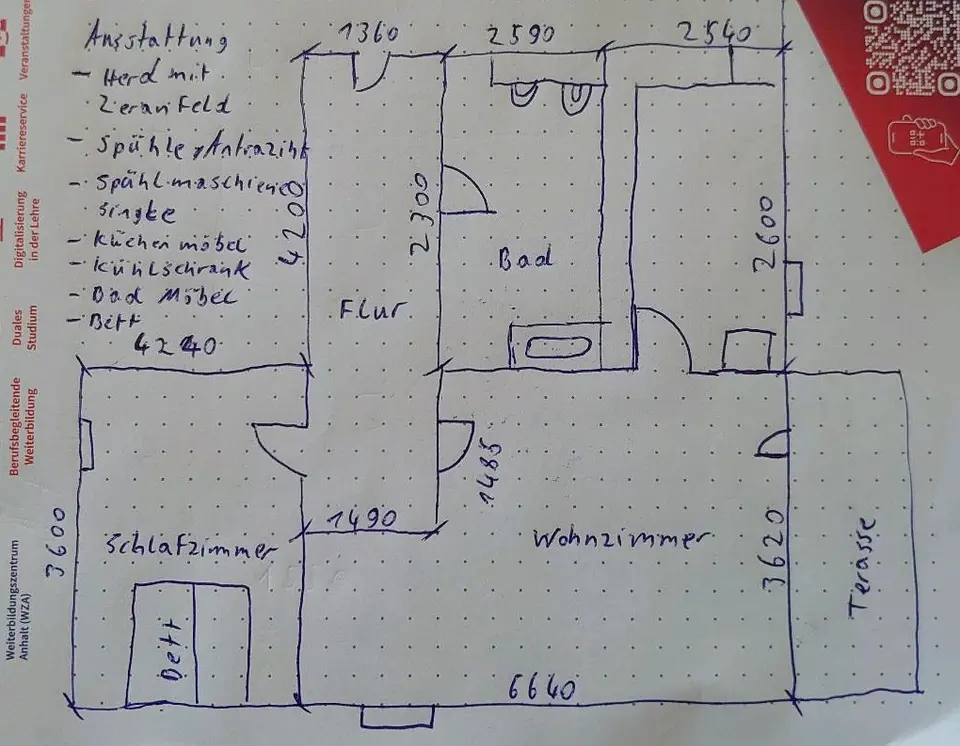 Ausstattung
- Herd mit
Zeranfeld
- Spühle Antraziht
- Spühlmaschiene
Singke
- Küchen möbel
- Kühlschrank
- Bad Möbel
- Bett
1360
2590
2540
4200
2300
2600
Bad
Flur
4240
1485
1490
3600
Schlafzimmer
Wohnzimmer
3620
Terasse
Bett
6640
Veranstaltungen
Karriereservice
Digitalisierung
in der Lehre
Duales
Studium
Berufsbegleitende
Weiterbildung
Weiterbildungszentrum
Anhalt (WZA)